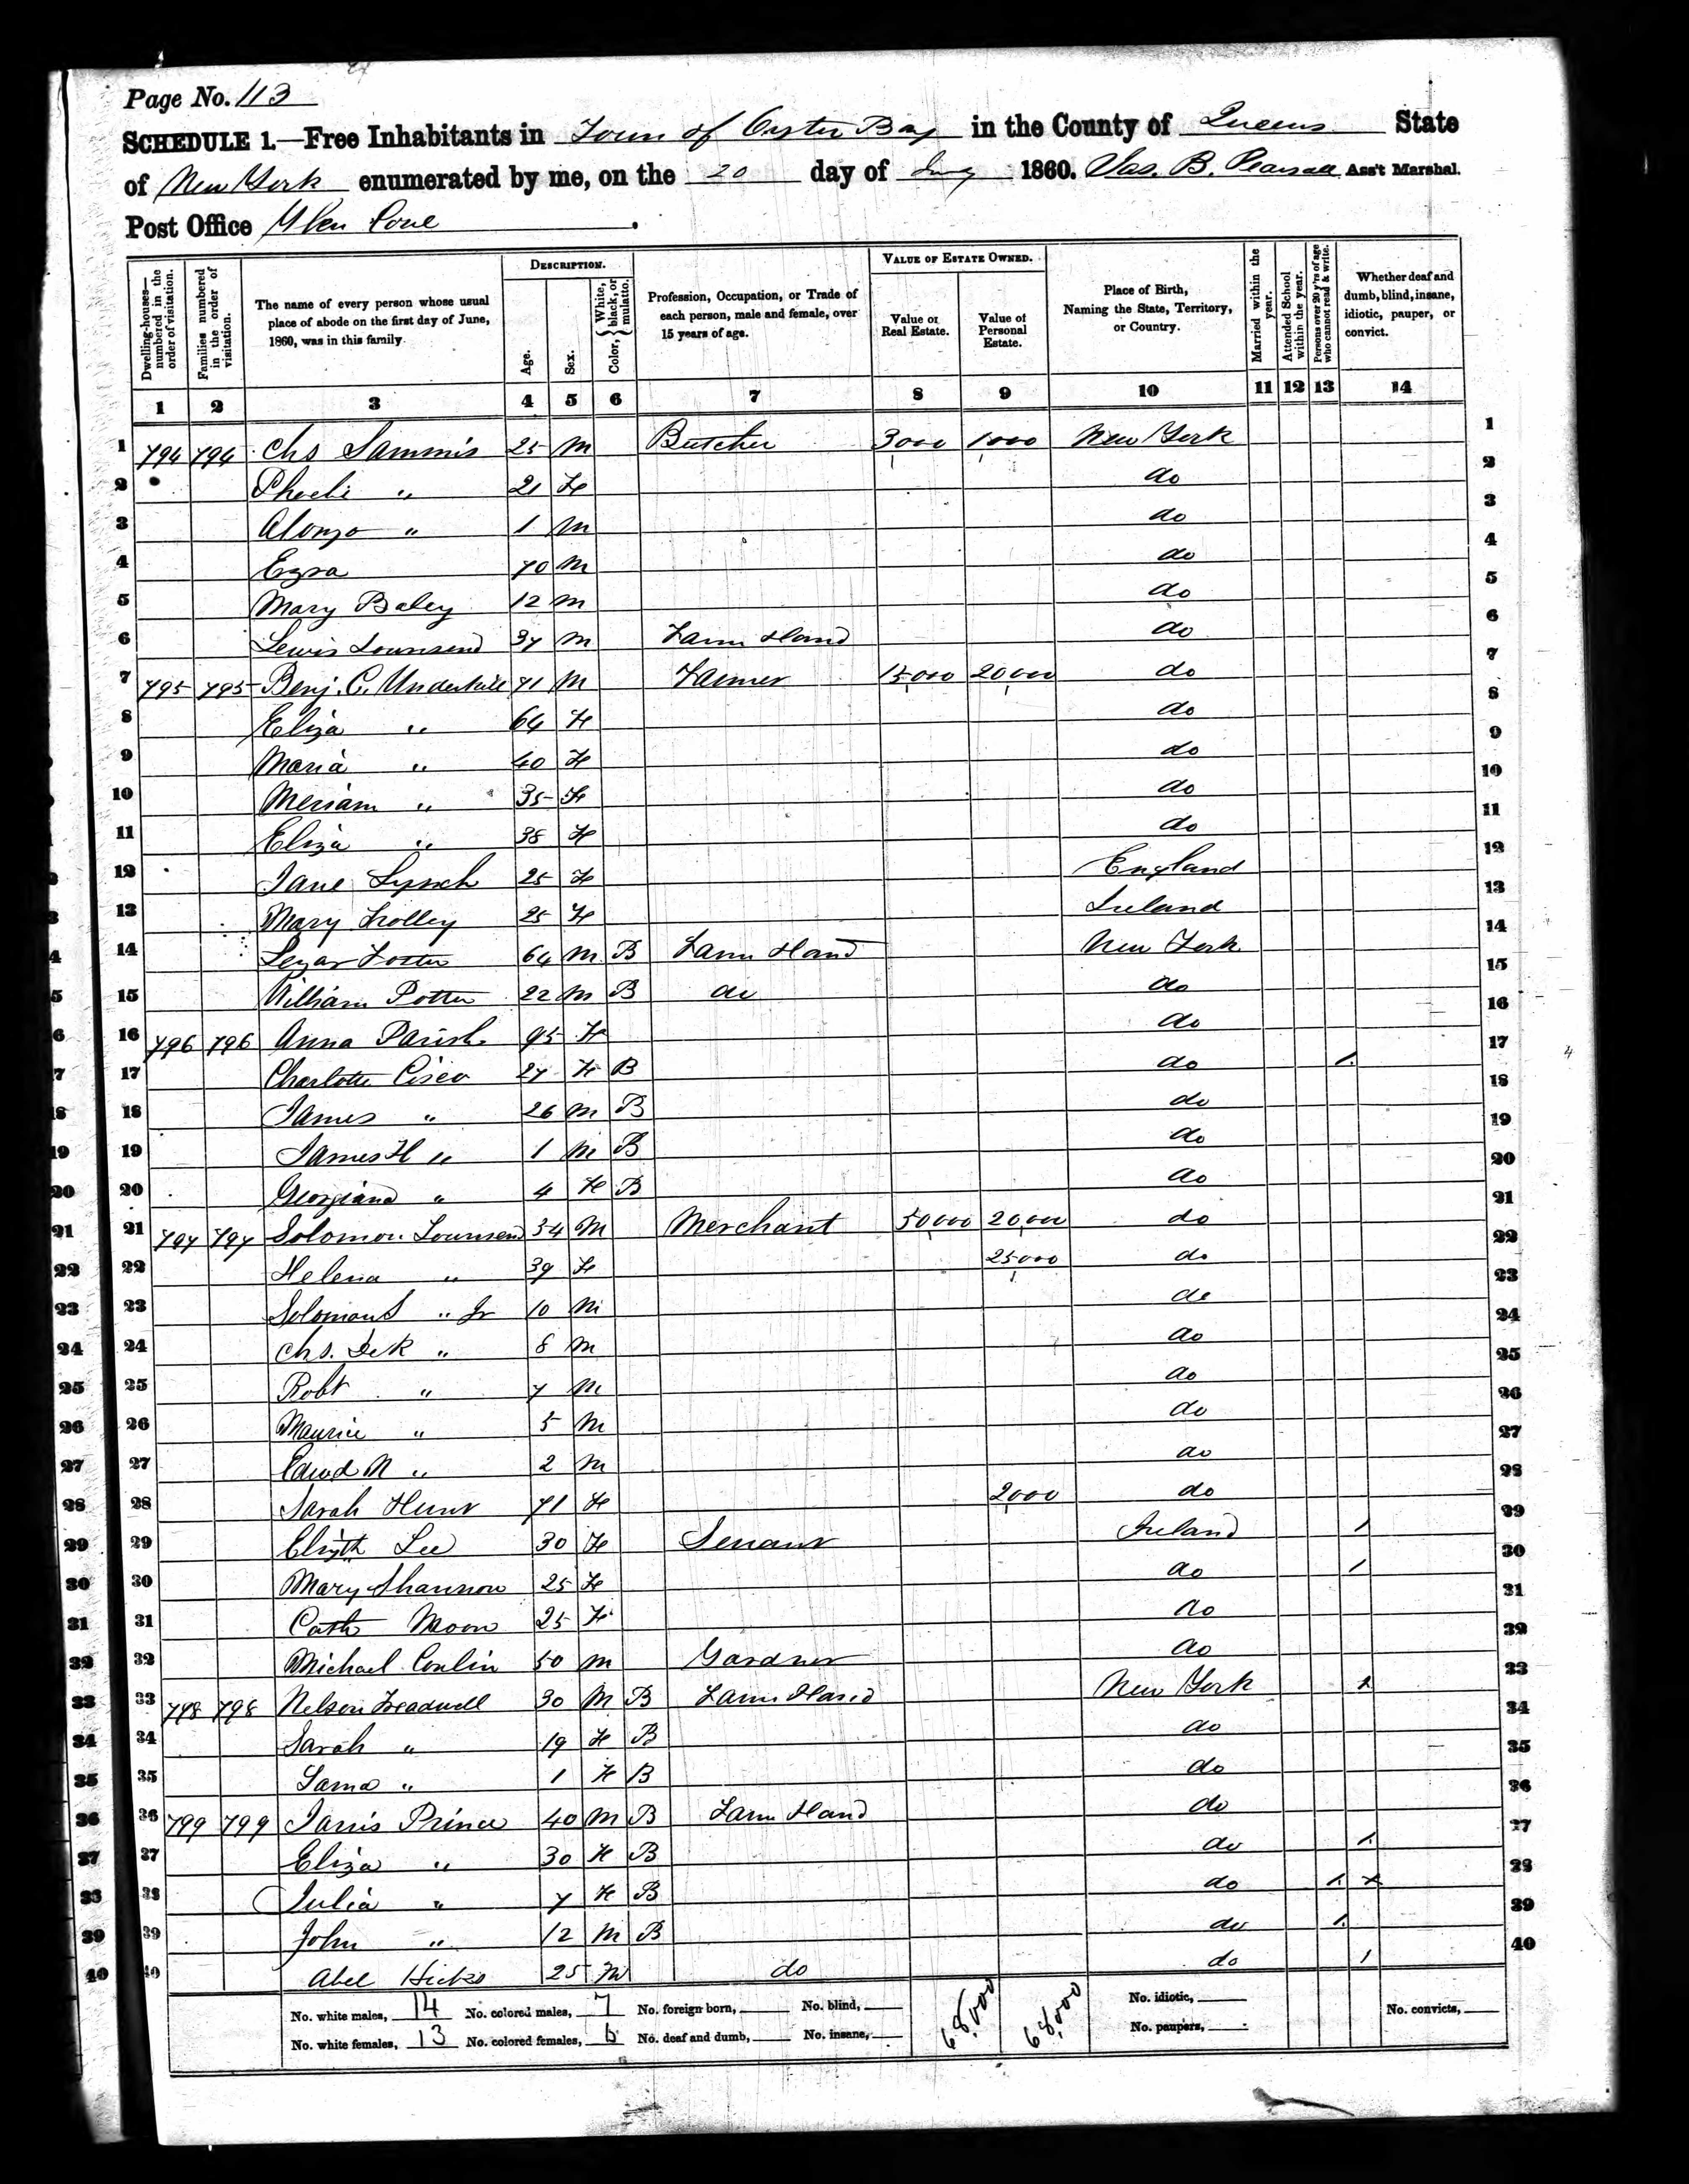 Page No. 113
SCHEDULE 1.—Free Inhabitants in Town of Oyster Bay in the County of Queens State
of New York enumerated by me, on the 20 day of 1860. B. Pearsall Ass't Marshal.
Post Office Glen Cove.
Dwelling-houses—numbered in the order of visitation.
Families numbered in the order of visitation.
The name of every person whose usual place of abode on the first day of June, 1860, was in this family.
DESCRIPTION.
Age.
Sex.
Color, { White, black, or mulatto.
Profession, Occupation, or Trade of each person, male and female, over 15 years of age.
VALUE OF ESTATE OWNED.
Value of Real Estate.
Value of Personal Estate.
Place of Birth, Naming the State, Territory, or Country.
Married within the year.
Attended School within the year.
Persons over 20 y'rs of age who cannot read & write.
Whether deaf and dumb, blind, insane, idiotic, pauper, or convict.
1 2 3 4 5 6 7 8 9 10 11 12 13 14
1 794 794 Chs Sammis 25 M Butcher 3000 1000 New York 1
2 Phoebe " 21 F do 2
3 Alonzo " 1 M do 3
4 Ezra 70 M do 4
5 Mary Baley 12 M do 5
6 Lewis Townsend 37 M Farm Hand do 6
7 795 795 Benj. C. Underhill 71 M Farmer 15,000 20,000 do 7
8 Eliza " 64 F do 8
9 Maria " 40 F do 9
10 Meriam " 35 F do 10
11 Eliza " 38 F do 11
12 Jane Lynch 25 F England 12
13 Mary Trolley 25 F Ireland 13
14 Foster 64 M B Farm Hand New York 14
15 William Potter 22 M B do do 15
16 796 796 Anna Parish 95 F do 16
17 Charlotte Cisco 27 F B do 1 17
18 James " 26 M B do 18
19 James H " 1 M B do 19
20 Georgiana " 4 F B do 20
21 797 797 Solomon Townsend 34 M Merchant 50,000 20,000 do 21
22 Helena " 39 F 25,000 do 22
23 Solomon S " Jr 10 M do 23
24 Chs. DeK " 8 M do 24
25 Robt " 7 M do 25
26 Maurice " 5 M do 26
27 Edwd N " 2 M do 27
28 Sarah Hunt 71 F 2,000 do 28
29 Lee 30 F Servant Ireland 1 29
30 Mary Shannon 25 F do 1 30
31 Cath Moon 25 F do 31
32 Michael Conlin 50 M Gardner do 32
33 798 798 Nelson Treadwell 30 M B Farm Hand New York 1 33
34 Sarah " 19 F B do 34
35 " 1 F B do 35
36 799 799 Prince 40 M B Farm Hand do 36
37 Eliza " 30 F B do 1 37
38 Julia " 7 F B do 1 38
39 John " 12 M B do 1 39
40 Abel Hicks 25 M do do 1 40
No. white males, 14 No. colored males, 7 No. foreign born, No. blind, 68,000 68,000 No. idiotic, No. convicts,
No. white females, 13 No. colored females, 6 No. deaf and dumb, No. insane, No. paupers,